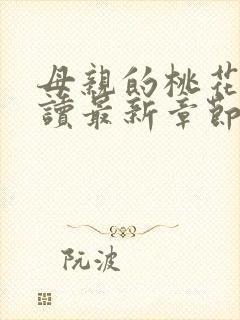 母親的桃花
讀最新章節
阮波